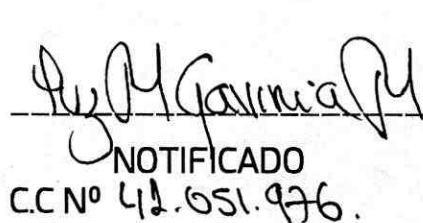 Luz M Gaviria M
NOTIFICADO
C.C Nº 42.051.976.